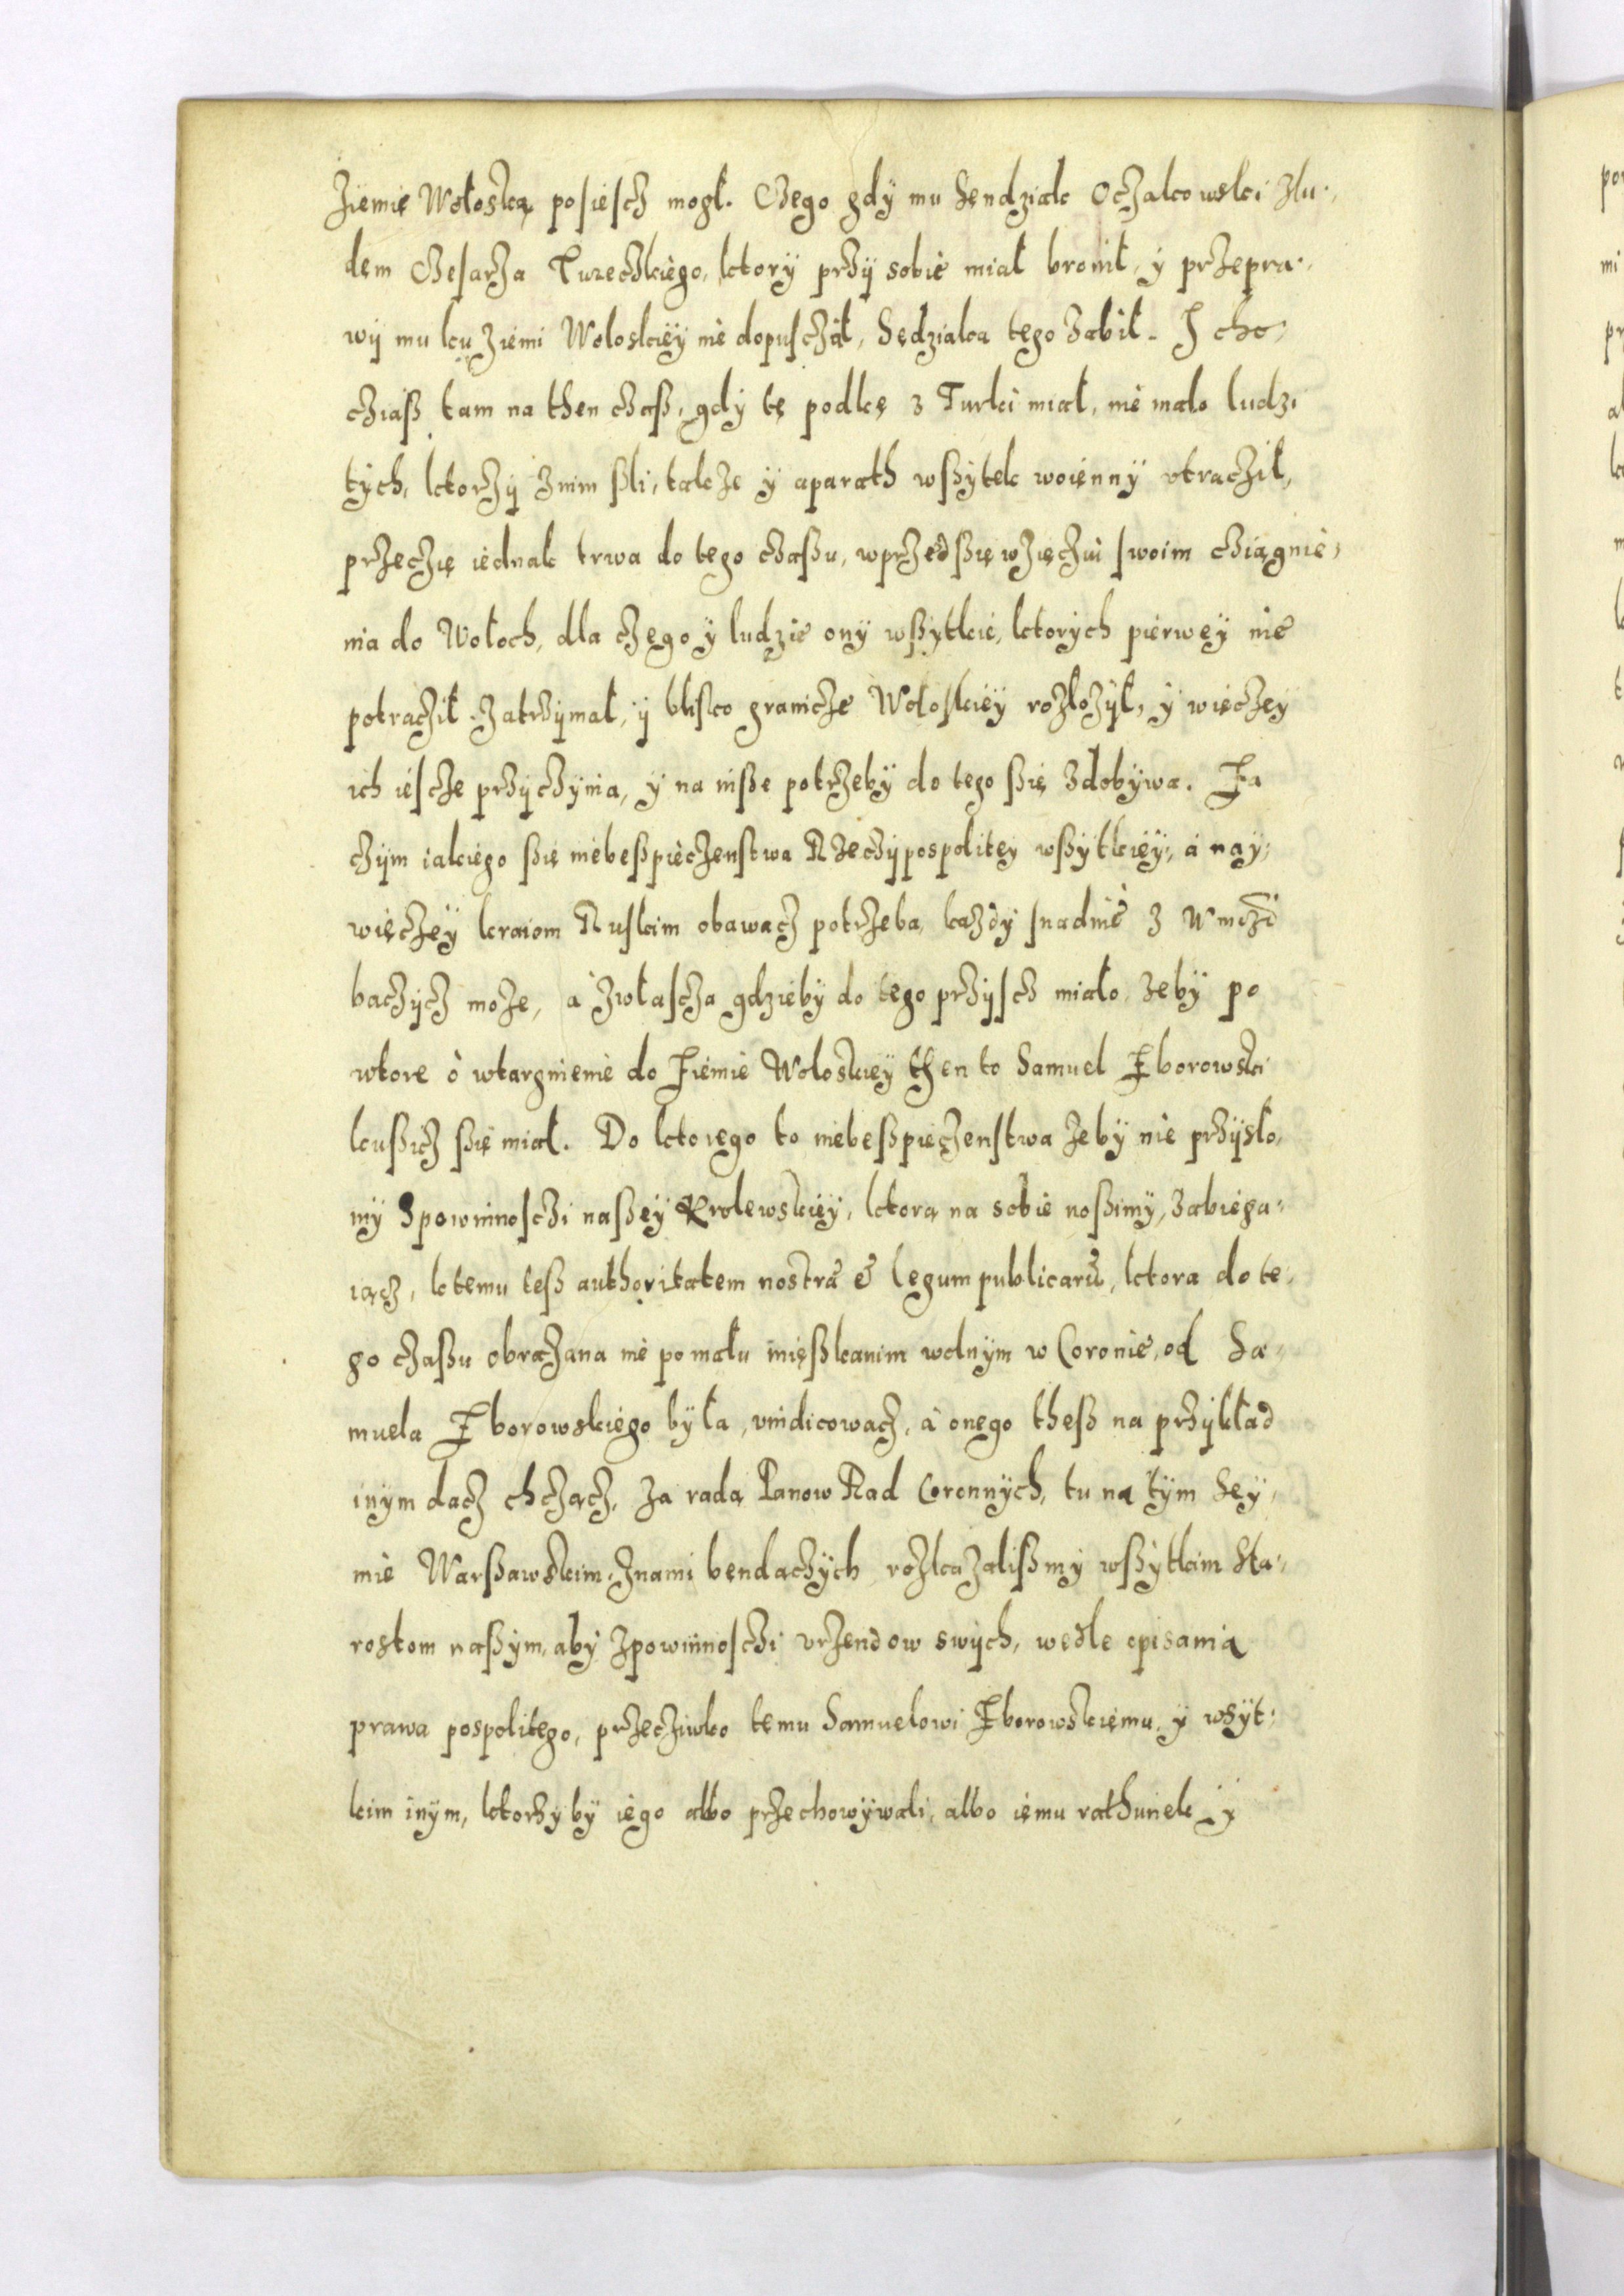 Ziemię Wołoską posiescz mogł. Czego gdÿ mu Sendziak Oczakowski zlu-
dem Czesarza Tureczkiego, ktorÿ przÿ sobie miał bronił, ÿ przepra-
wÿ mu ku Ziemi Wołoskieÿ nie dopusczał, Sędziaka tego zabił. I cho-
cziaß tam na then czaß, gdÿ tę potkę z Turki miał, nie mało ludzi
tÿch, ktorzÿ znim ßli, takze ÿ aparath wßÿtek woiennÿ vtracził,
przeczię iednak trwa do tego czaßu, wprzedßięwzięcziu swoim cziągnie-
nia do Wołoch, dla czego ÿ ludzie onÿ wßÿtkie, ktorÿch pierweÿ nie
potracził zatrzÿmał, ÿ blisko granicze Wołoskieÿ rozłożÿł, ÿ wieczeÿ
ich iescze przÿczÿnia, ÿ na inße potrzebÿ do tego ßię zdobÿwa. Za
czÿm iakiego ßię niebeßpieczenstwa Rzeczÿpospoliteÿ wßÿtkieÿ, a naÿ-
więczeÿ kraiom Ruskim obawacz potrzeba, każdÿ snadnie z
baczÿcz może, a zwłascza gdziebÿ do tego przÿscz miało, zebÿ po
wtore o wtargnienie do Ziemie Wołoskieÿ then to Samuel Zborowski
kußicz ßię miał. Do ktorego to niebeßpieczenstwa żebÿ nie przÿsło,
mÿ zpowinnosczi naßeÿ Krolewskieÿ, ktorą na sobie noßimÿ, zabiega-
iącz, ktemu teß authoritatem nostrã et legum publicarũ, ktora do te-
go czaßu obrażana nie pomału mießkanim wolnÿm w Coronie, od Sa-
muela Zborowskiego bÿła, vindicowacz, a onego theß na przÿkład
inÿm dacz chcząncz, za radą Panow Rad Coronnÿch, tu na tÿm Seÿ-
mie Warßawskim, znami bendączÿch rozkazalißmÿ wßÿtkim Sta-
rostom naßÿm, abÿ zpowinnosczi vrzendow swÿch, wedle opisania
prawa pospolitego, przecziwko temu Samuelowi Zborowskiemu, ÿ wsÿt-
kim inÿm, ktorzÿbÿ iego albo przechowÿwali, albo iemu rathunek ÿ